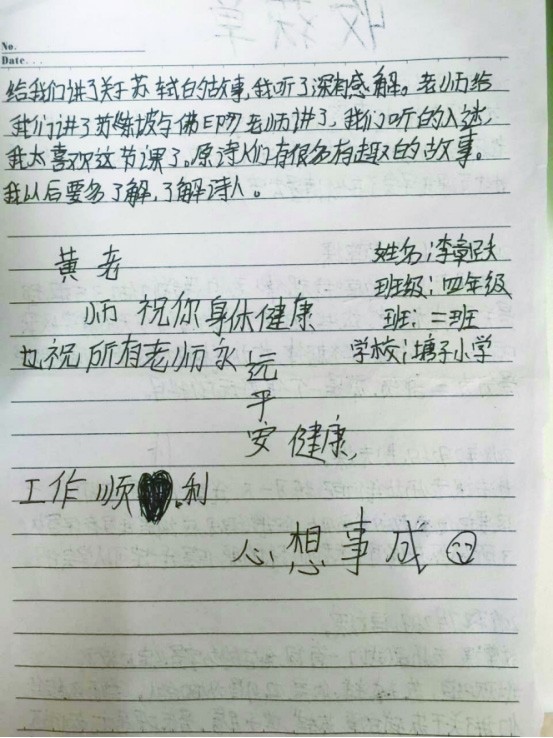 No.
Date...
给我们讲了关于苏轼的故事,我听了深有感解。老师给
我们讲了苏东坡与佛印,老师讲了,我们听的入迷,
我太喜欢这节课了。原诗人们有很多有趣的故事。
我以后要多了解,了解诗人。
黄老
师 祝你身体健康
也祝所有老师永远
平
安健康,
姓名:李
班级:四年级
班:二班
学校:塘子小学
工作顺利
心想事成